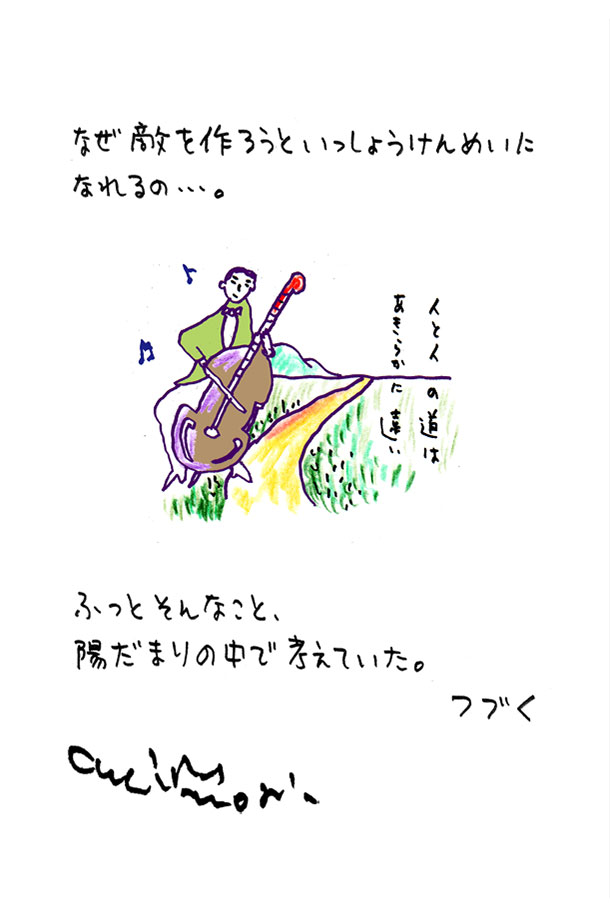 なぜ敵を作ろうといっしょうけんめいに
なれるの…。
人と人の道は
あきらかに遠い
ふっとそんなこと、
陽だまりの中で考えていた。
つづく